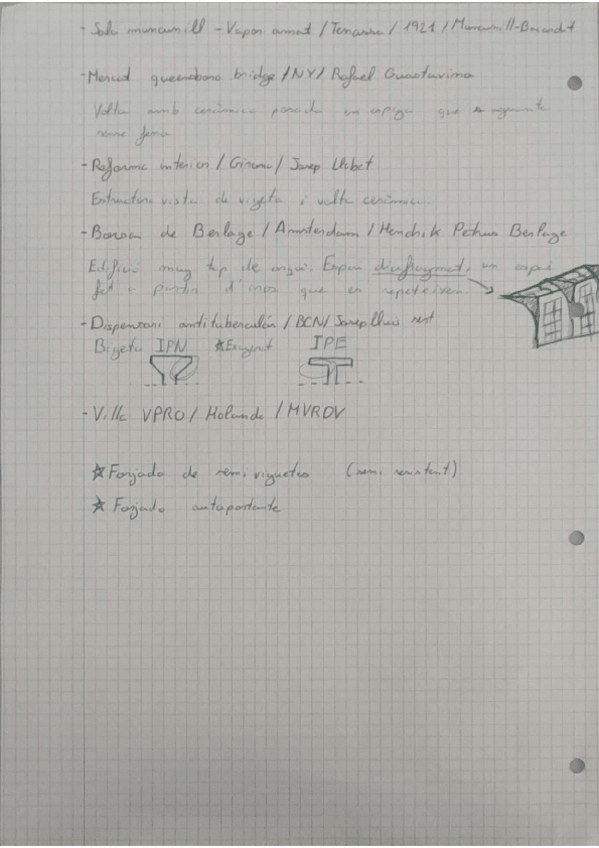 - Sala muncunill - Vapor armat / Terrassa / 1921 / Muncunill-
- Mercat queensboro bridge / NY / Rafael Guastavino
Volta amb ceràmica posada en espiga que s'aguanta
sense
- Reforma interior / Girona / Josep Llobet
Estructura vista de vigeta i volta ceràmica.
- Borsa de Berlage / Amsterdam / Hendrik Petrus Berlage
Edifici muy top de angui. Espai un espai
fet a partir d'arcs que es repeteixen
- Dispensari antituberculós / BCN / Josep lluis sert
Bigeta IPN IPE
- Villa VPRO / Holanda / MVRDV
☆ Forjado de semi viguetas (semi resistent)
☆ Forjado autoportante